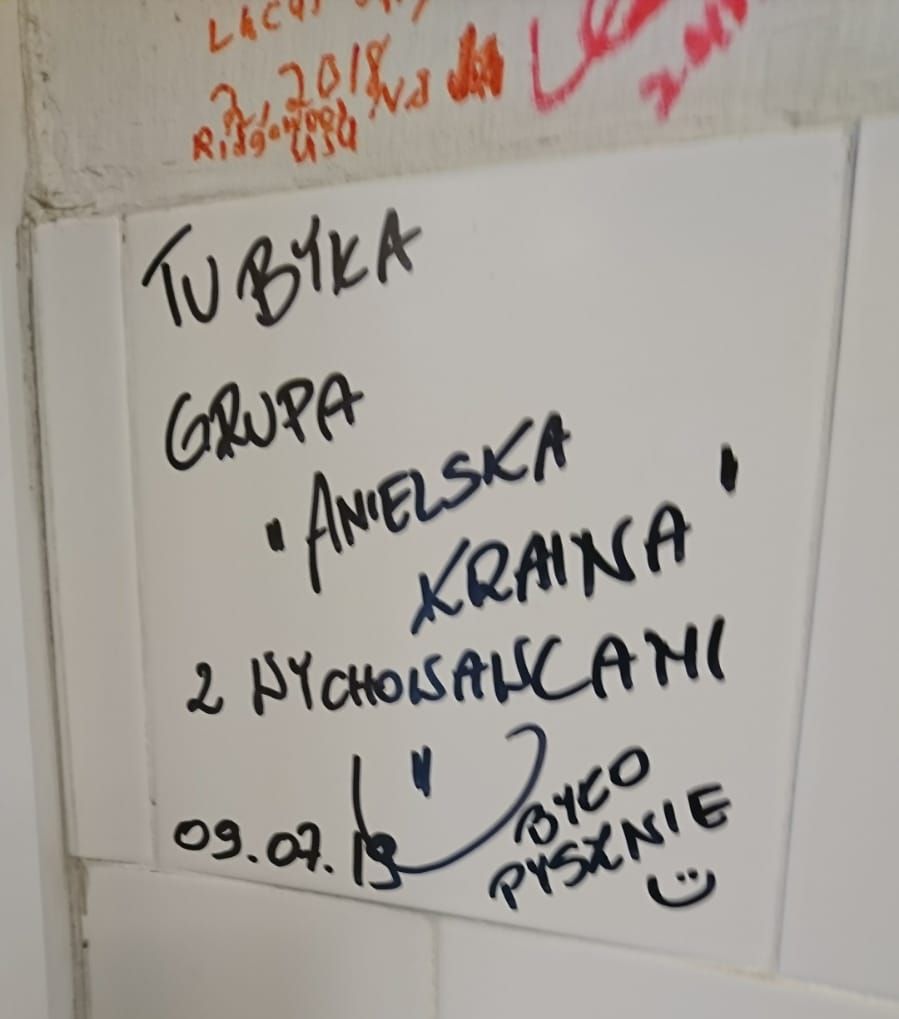 2018
USA
TU BYŁA
GRUPA
"ANIELSKA
KRAINA"
Z WYCHOWAWCAMI
09.07.19
BYŁO
PYSZNIE